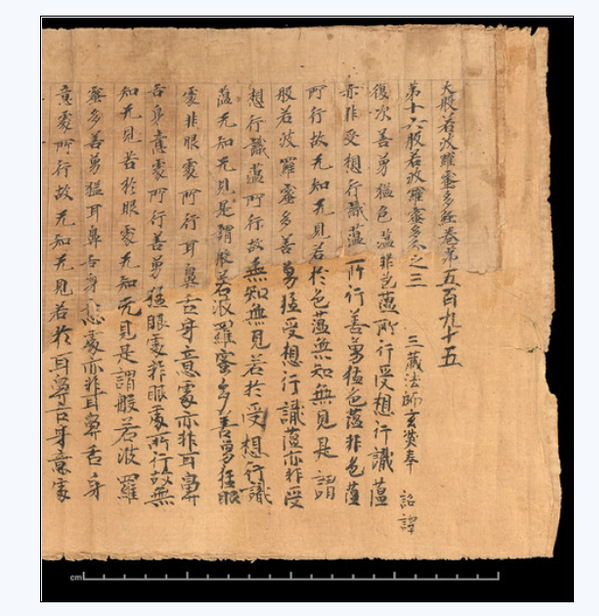 大般若波羅蜜多經卷第五百九十五
第十六般若波羅蜜多分之三 三藏法師玄奘奉 詔譯
復次善勇猛色蘊非色蘊所行受想行識蘊
亦非受想行識蘊所行善勇猛色蘊非色蘊
所行故无知无見若於色蘊無知無見是謂
般若波羅蜜多善勇猛受想行識蘊亦非受
想行識蘊所行故無知無見若於受想行識
蘊无知无見是謂般若波羅蜜多善勇猛眼
處非眼處所行耳鼻舌身意處亦非耳鼻
舌身意處所行善勇猛眼處非眼處所行故無
知无見若於眼處无知无見是謂般若波羅
蜜多善勇猛耳鼻舌身意處亦非耳鼻舌身
意處所行故无知无見若於耳鼻舌身意處
cm